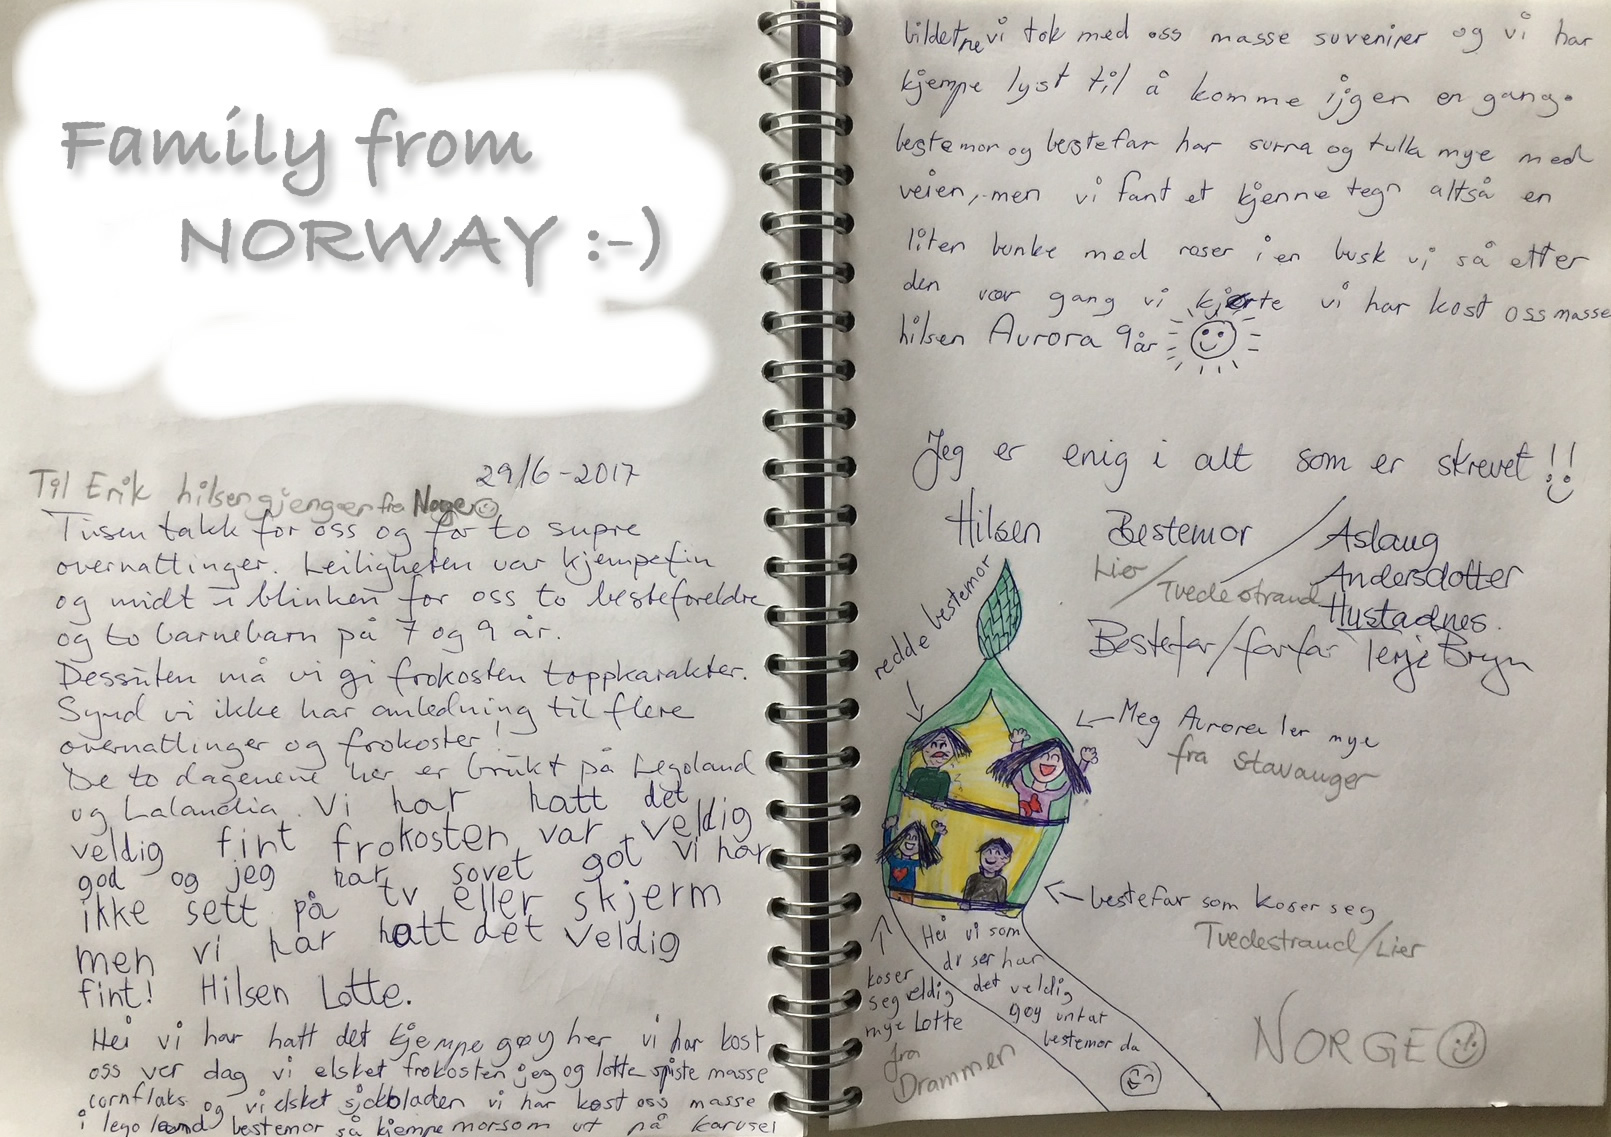 Family from
NORWAY :-)
29/6-2017
Til Erik hilsen gjengen fra Norge
Tusen takk for oss og for to supre
overnattinger. Leiligheten var kjempefin
og midt i blinken for oss to besteforeldre
og to barnebarn på 7 og 9 år.
Dessuten må vi gi frokosten toppkarakter.
Synd vi ikke har anledning til flere
overnattinger og frokoster!
De to dagene her er brukt på Legoland
og Lalandia. Vi har hatt det
veldig fint frokosten var veldig
god og jeg har sovet got vi har
ikke sett på tv eller skjerm
men vi har hatt det veldig
fint! Hilsen Lotte.
Hei vi har hatt det kjempe gøy her vi har kost
oss ver dag vi elsket frokosten jeg og lotte spiste masse
cornflaks og vi elsket sjokbladen vi har kost oss masse
i lego land bestemor så kjempe morsom ut på karusel
bildet ne vi tok med oss masse suvenirer og vi har
kjempe lyst til å komme ijgen en gang.
bestemor og bestefar har surra og tulla mye med
veien, men vi fant et kjenne tegn altså en
liten bunke med roser i en busk vi så etter
den vær gang vi kjørte vi har kost oss masse
hilsen Aurora 9 år
Jeg er enig i alt som er skrevet !!
Hilsen Bestemor / Aslaug
Lier / Tvedestrand Andersdotter
Hustadnes.
Bestefar/farfar Terje Bryn
redde bestemor
Meg Aurora ler mye
fra Stavanger
bestefar som koser seg
Tvedestrand/Lier
koser
seg veldig
mye Lotte
fra
Drammen
Hei vi som
du ser har
det veldig
gøy untat
bestemor da
NORGE